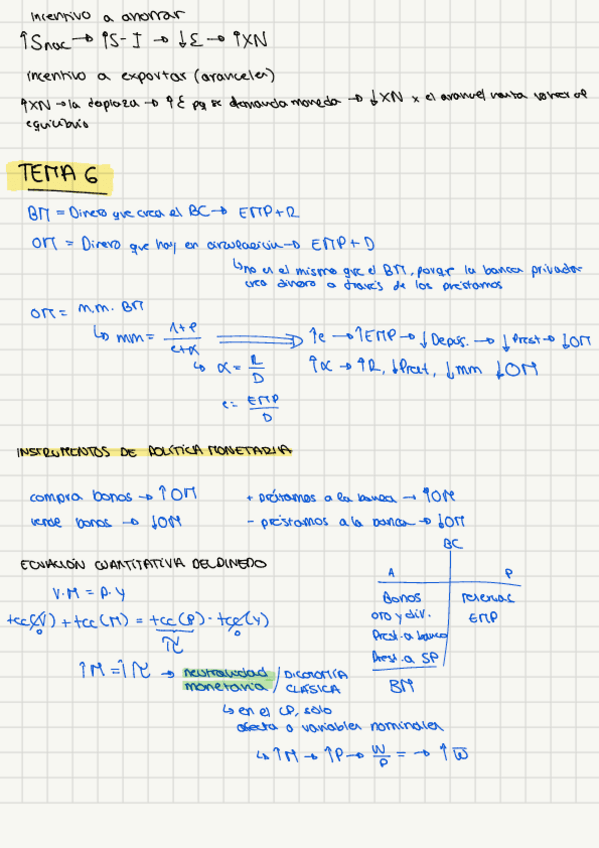 Incentivo a ahorrar
↑Snac → ↑S-I → ↓ε → ↑XN
Incentivo a exportar (aranceles)
↑XN → la desplaza → ↑ε pq se demanda moneda → ↓XN x el arancel hasta volver al
equilibrio
TEMA 6
BM = Dinero que crea el BC → EMP+R
OM = Dinero que hay en circulación → EMP + D
↳ no es el mismo que el BM, porque la banca privada
crea dinero a través de los préstamos
OM = m.m. BM
↳ mm = 1+e / e+α ⟹ ↑e → ↑EMP → ↓Depós. → ↓Prest → ↓OM
↳ α = R/D ↑α → ↑R, ↓Prest, ↓mm ↓OM
e = EMP/D
INSTRUMENTOS DE POLÍTICA MONETARIA
compra bonos → ↑OM + préstamos a la banca → ↑OM
vende bonos → ↓OM - préstamos a la banca → ↓OM
ECUACIÓN CUANTITATIVA DEL DINERO
BC
A P
Bonos reservas
oro y div. EMP
Prest. a banca
Prest. a SP
BM
V.M = P.Y
tcc(V) + tcc(M) = tcc(P) · tcc(Y)
0 π 0
↑M = ↑π → neutralidad monetaria / DICOTOMÍA CLÁSICA
↳ en el CP, solo
afecta a variables nominales
↳ ↑M → ↑P → W/P = → ↑W